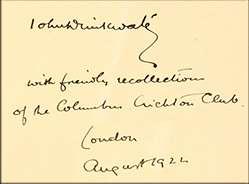 John Drinkwater
with friendly recollections
of the Columbus Crichton Club.
London
August 1922